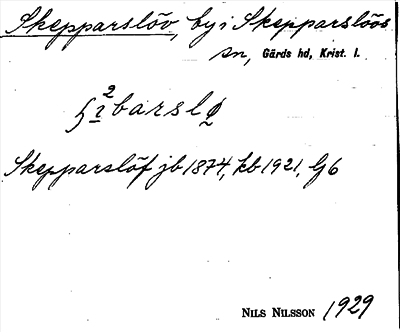 Skepparslöv, by i Skepparslövs
sn, Gärds hd, Krist. l.
Skepparslöf jb 1874, kb 1921, Gj 6
NILS NILSSON 1929